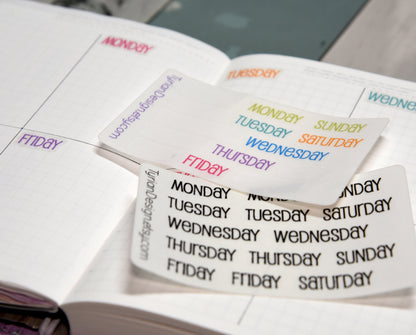 MONDAY
TUESDAY
WEDNESDAY
FRIDAY
TynanDesign.etsy.com
MONDAY SUNDAY
TUESDAY SATURDAY
WEDNESDAY
THURSDAY
FRIDAY
TynanDesign.etsy.com
MONDAY MONDAY SUNDAY
TUESDAY TUESDAY SATURDAY
WEDNESDAY WEDNESDAY
THURSDAY THURSDAY SUNDAY
FRIDAY FRIDAY SATURDAY